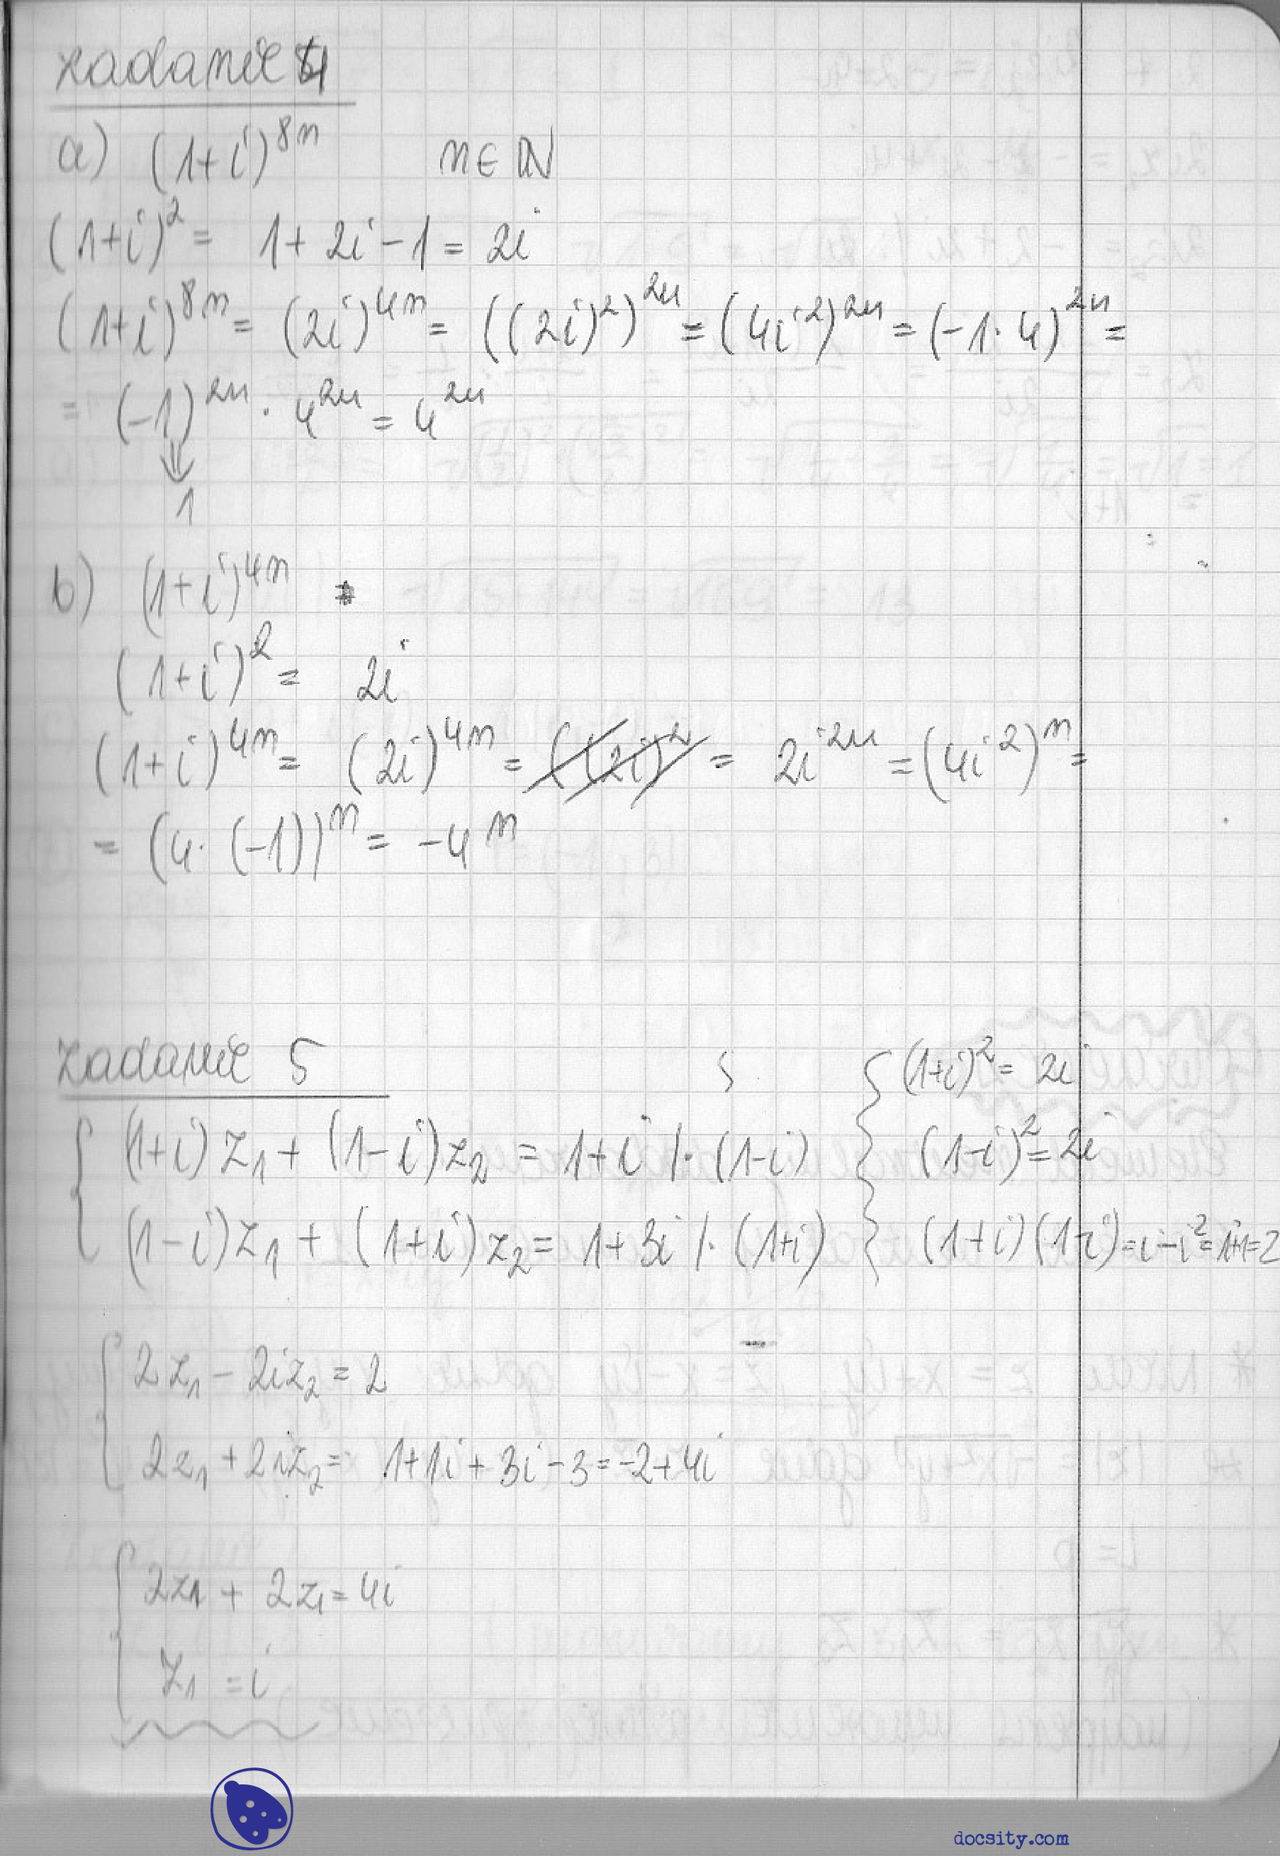 zadanie 4
a) (1+i)^8n n∈ℕ
(1+i)^2 = 1+2i-1 = 2i
(1+i)^8n = (2i)^4n = ((2i)^2)^2n = (4i^2)^2n = (-1·4)^2n =
= (-1)^2n · 4^2n = 4^2n
⇓
1
b) (1+i)^4n
(1+i)^2 = 2i
(1+i)^4n = (2i)^4n = ((2i)^2 = 2i^2n = (4i^2)^n =
= (4·(-1))^n = -4^n
zadanie 5
{ (1+i)z₁ + (1-i)z₂ = 1+i /·(1-i)
(1-i)z₁ + (1+i)z₂ = 1+3i /·(1+i)
{ (1+i)^2 = 2i
(1-i)^2 = 2i
(1+i)(1-i) = i-i^2 = 1+1 = 2
{ 2z₁ - 2iz₂ = 2
2z₁ + 2iz₂ = 1+1i+3i-3 = -2+4i
{ 2z₁ + 2z₁ = 4i
z₁ = i
docsity.com